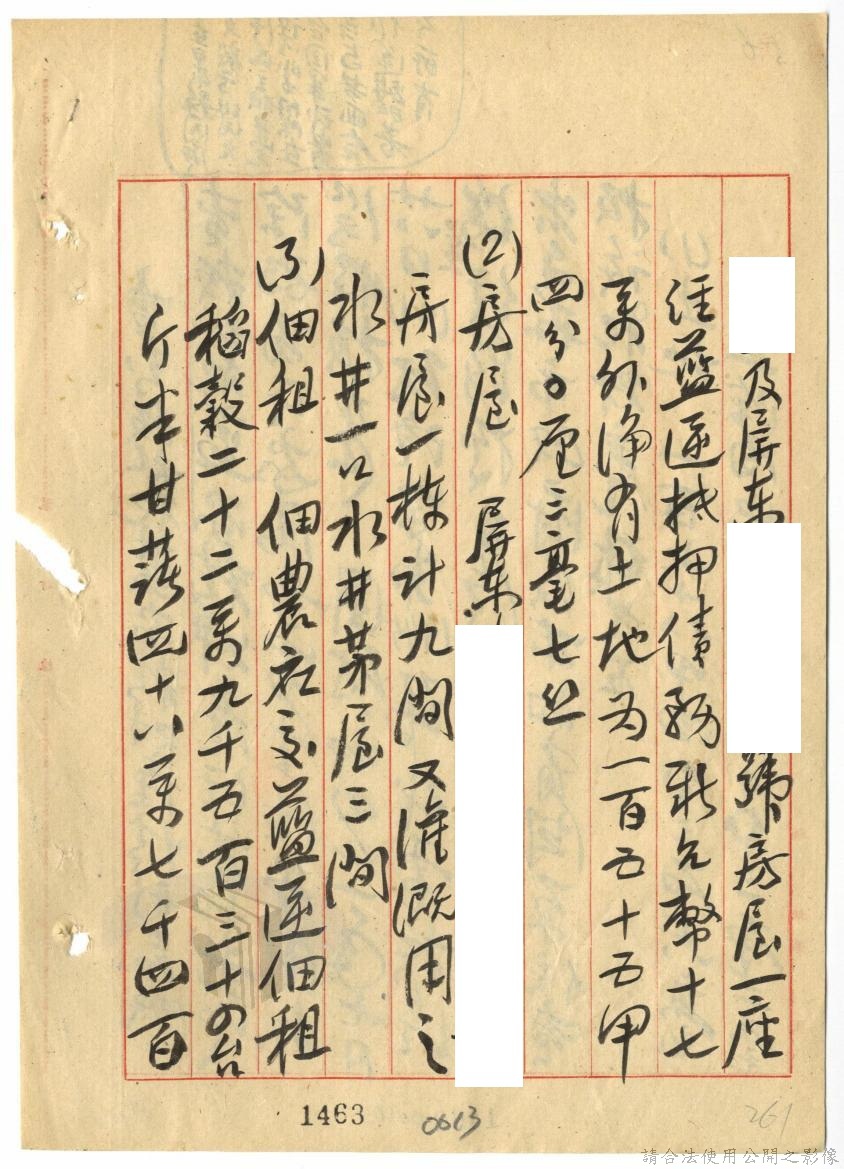 及屏东 號房屋一座
经蓝逆抵押债務新台幣十七
万外净有土地为一百五十五甲
四分0厘三毫七丝
(2)房屋 屏东
房屋一栋计九间又灌溉用之
水井一口水井茅屋三间
(3)佃租 佃農社交蓝逆佃租
稻穀二十二万九千五百三十四台
斤半甘藷四十八万七千四百
1463
0613
261
請合法使用公開之影像